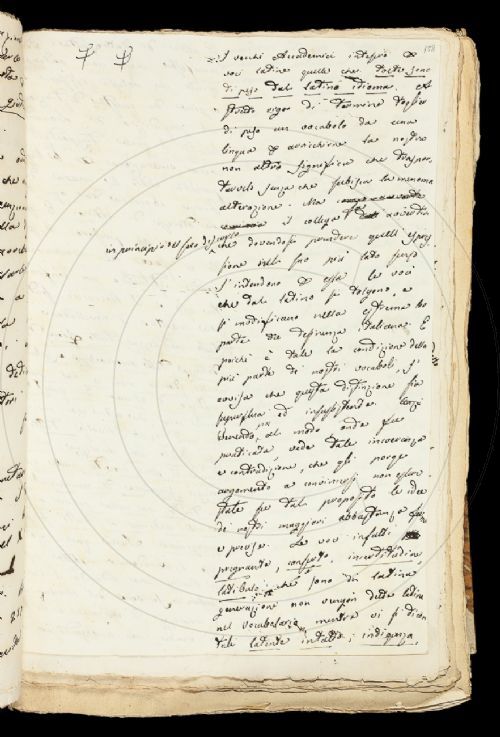 I vecchi Accademici intesero per
voci latine quelle che tolte sono
di peso dal latino idioma. A
stretto rigor di termine toglier
di peso un vocabolo da una
lingua per arricchirne la nostra
non altro significa che traspor
tarvelo senza che subisca la menoma
alterazione. Ma
il collega fa avvertir
in principio del suo discorso
che dovendosi prendere quell' espres
sione nel suo più lato senso
s' intendono per essa le voci
che dal latino si tolgono, e
si modificano nella estrema lor
parte per desinenza italiana. E
poichè è tale la condizione della
più parte de' nostri vocaboli, s'
avvisa che questa distinzione sia
superflua ed insussistente.
al modo onde fu
praticata, vede tale incoerenza
e contradizione, che gli porge
argomento a convincersi non essere
state su tal proposito le idee
de' nostri maggiori abbastanza
e precise. Le voci infatti
pregnante, consunto, incertitudine
che sono di latina
generazione non vengon dette latine
nel vocabolario, mentre vi si dicon
tali latente, intatto, indigenza,